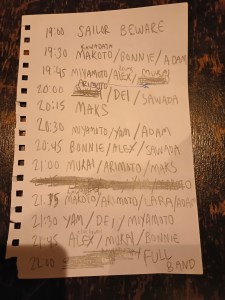 19:00 SAILOR BEWARE
19:30 MAKOTO/BONNIE/ADAM
19:45 MIYAMOTO/ALEX/MURAI
20:00 ARIMOTO/DEI/SAWADA
20:15 MAKS
20:30 MIYAMOTO/YAM/ADAM
20:45 BONNIE/ALEX/SAWADA
21:00 MURAI/ARIMOTO/MAKS
21:15 MAKOTO/ARIMOTO/LARA/ADAM
21:30 YAM/DEI/MIYAMOTO
21:45 ALEX/MURAI/BONNIE
22:00 FULL BAND